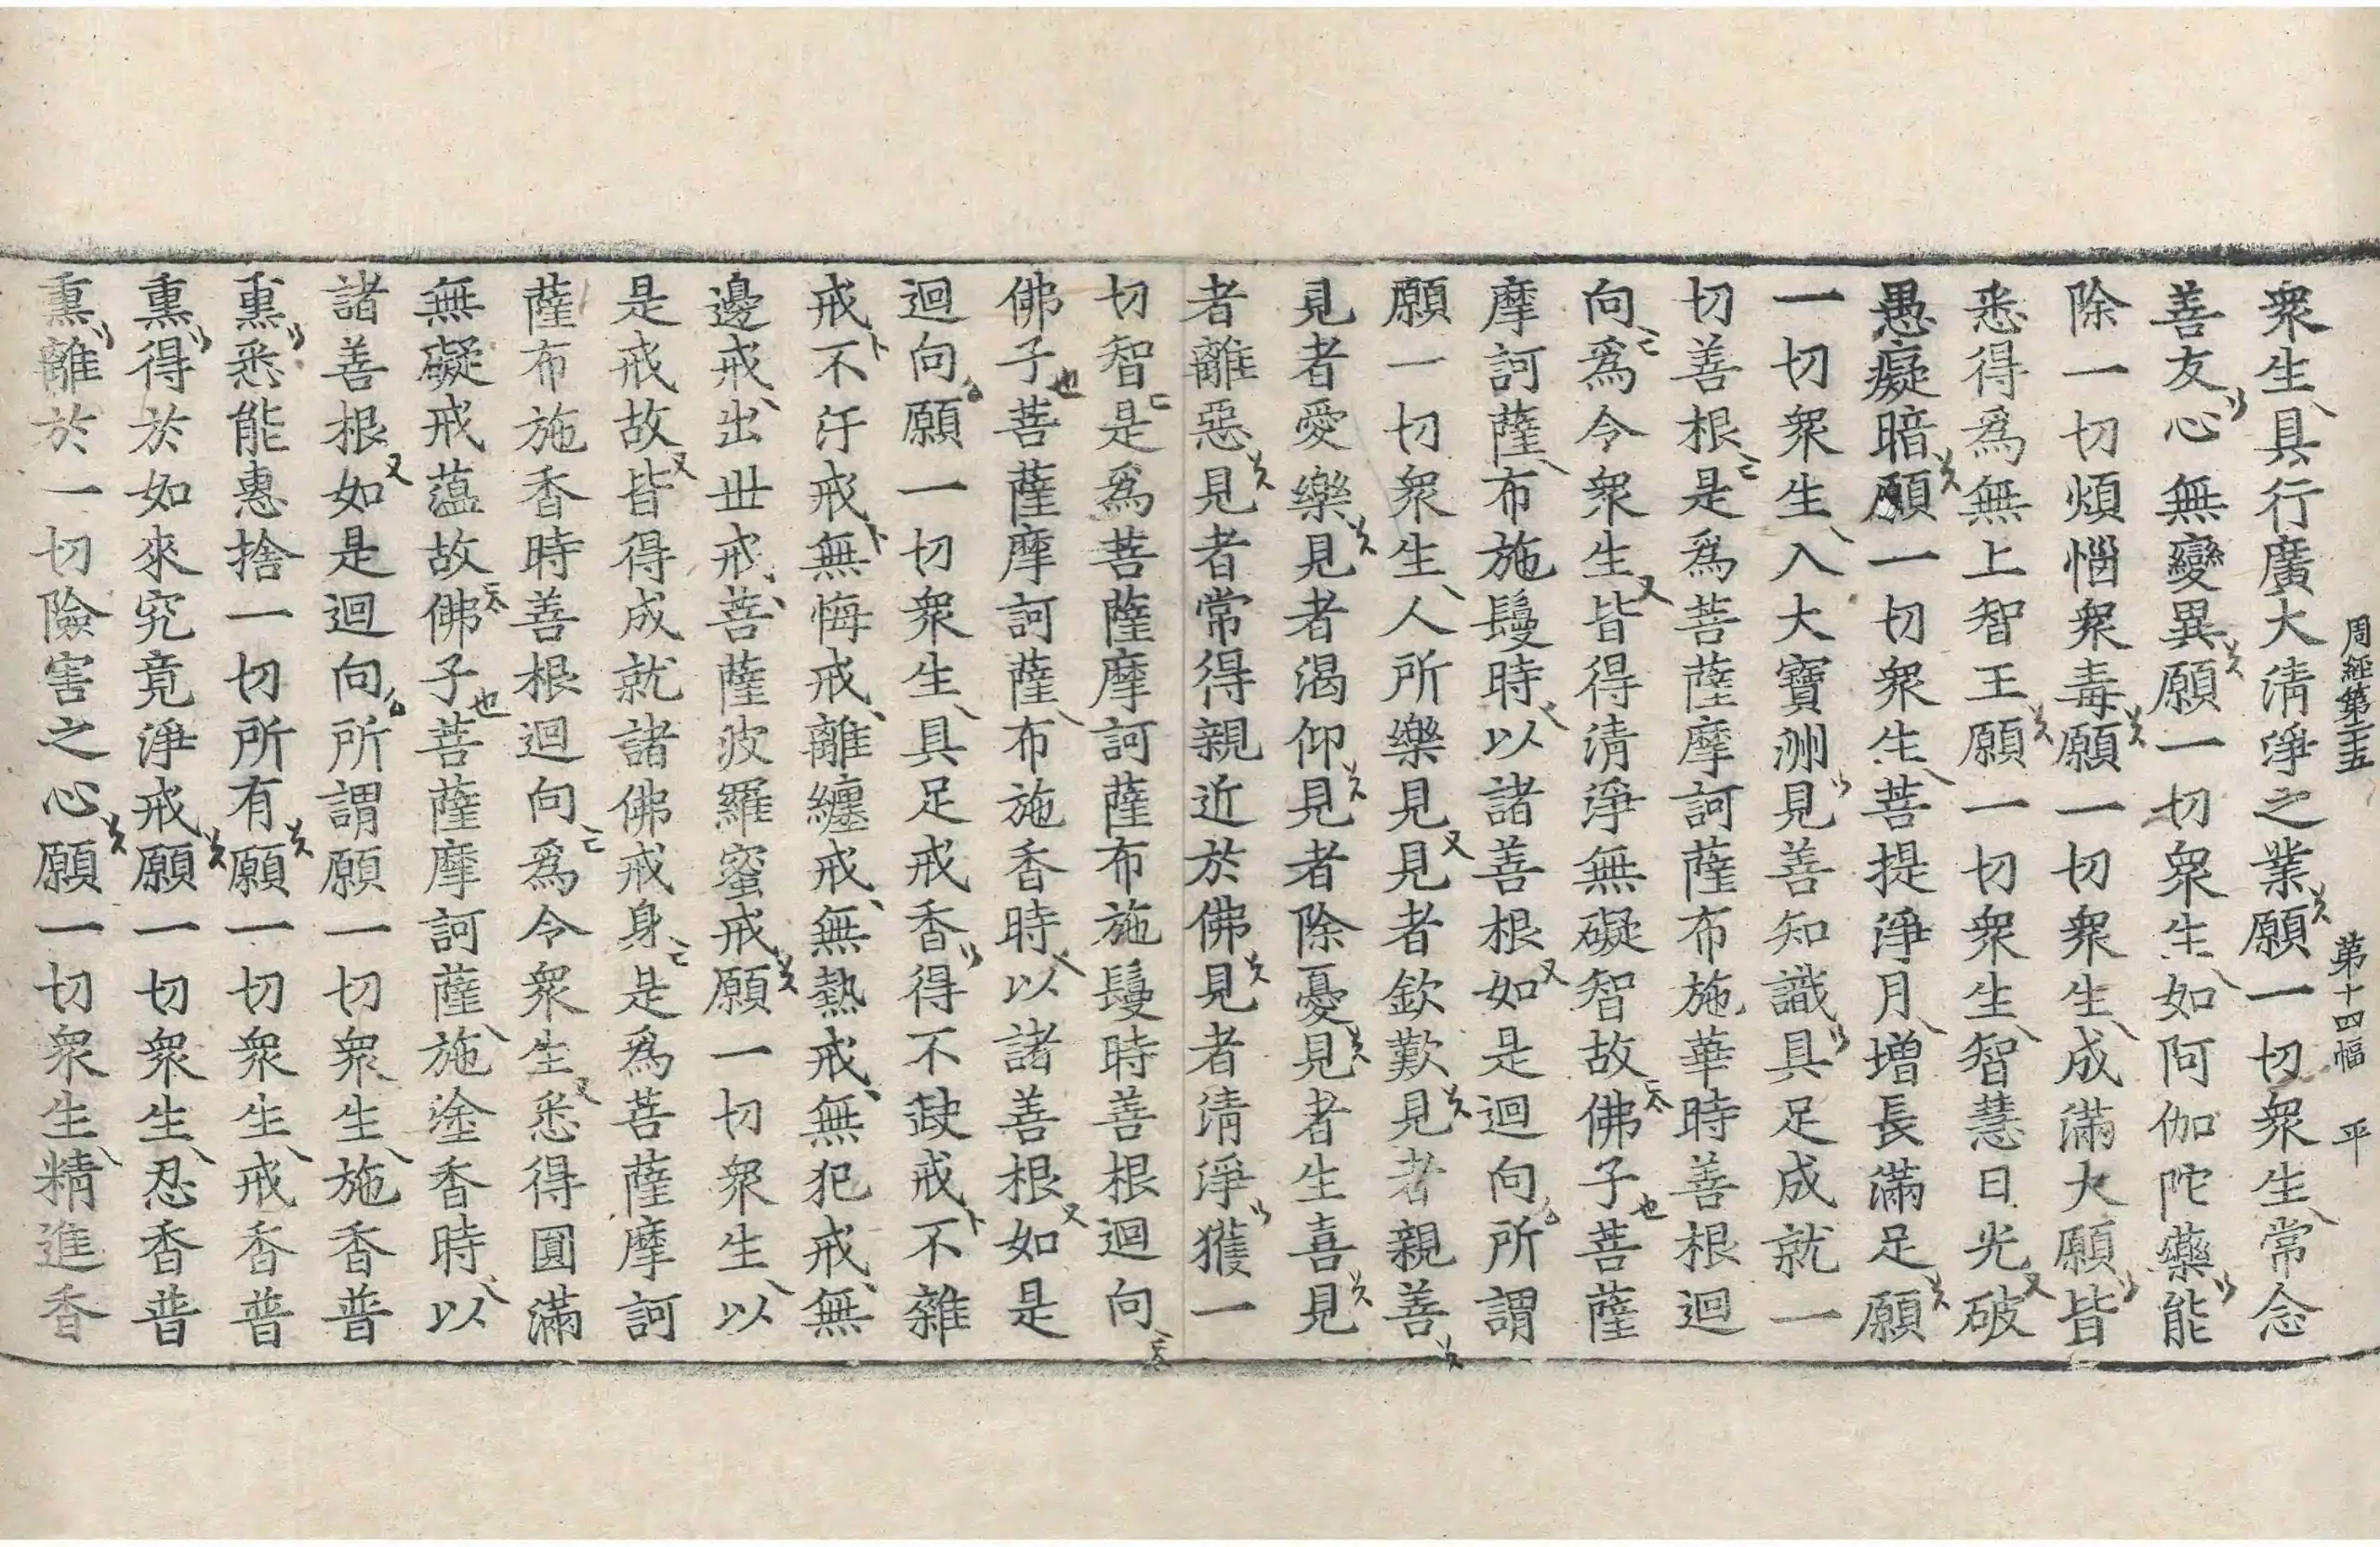 周經第二十五 第十四幅 平
衆生具行廣大淸淨之業願一切衆生常念
善友心無變異願一切衆生如阿伽陀藥能
除一切煩惱衆毒願一切衆生成滿大願皆
悉得爲無上智王願一切衆生智慧日光破
愚癡暗願一切衆生菩提淨月增長滿足願
一切衆生入大寶洲見善知識具足成就一
切善根是爲菩薩摩訶薩布施華時善根迴
向爲令衆生皆得淸淨無礙智故佛子菩薩
摩訶薩布施鬘時以諸善根如是迴向所謂
願一切衆生人所樂見見者欽歎見者親善
見者愛樂見者渴仰見者除憂見者生喜見
者離惡見者常得親近於佛見者淸淨獲一
切智是爲菩薩摩訶薩布施鬘時善根迴向
佛子菩薩摩訶薩布施香時以諸善根如是
迴向願一切衆生具足戒香得不𡙇戒不雜
戒不汙戒無悔戒離纏戒無熱戒無犯戒無
邊戒出世戒菩薩波羅蜜戒願一切衆生以
是戒故皆得成就諸佛戒身是爲菩薩摩訶
薩布施香時善根迴向爲令衆生悉得圓滿
無礙戒蘊故佛子菩薩摩訶薩施塗香時以
諸善根如是迴向所謂願一切衆生施香普
熏悉能惠捨一切所有願一切衆生戒香普
熏得於如來究竟淨戒願一切衆生忍香普
熏離於一切險害之心願一切衆生精進香